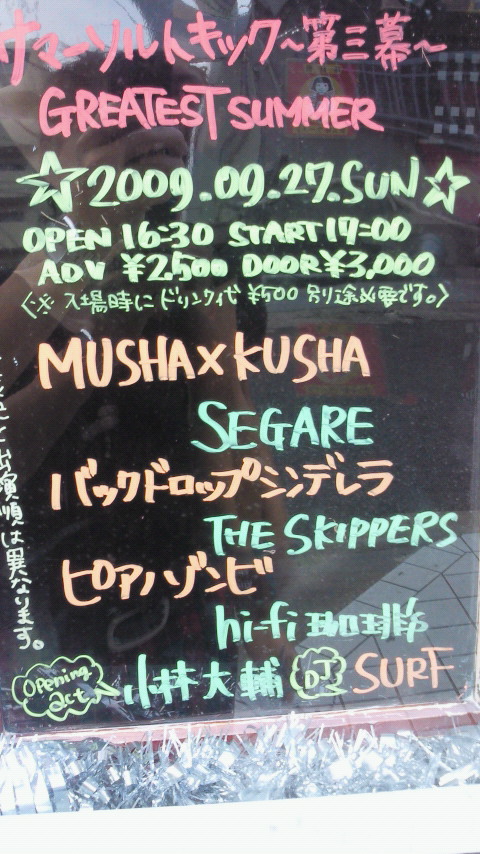 サマーソルトキック〜第三幕〜
GREATEST SUMMER
☆2009.09.27.SUN☆
OPEN 16:30 START 17:00
ADV ¥2,500 DOOR ¥3,000
〈※入場時にドリンク代¥500別途必要です。〉
MUSHA×KUSHA
SEGARE
バックドロップシンデレラ
THE SKIPPERS
ピアノゾンビ
hi-fi 珈琲
opening act 小林大輔 DJ SURF
出演順は異なります。